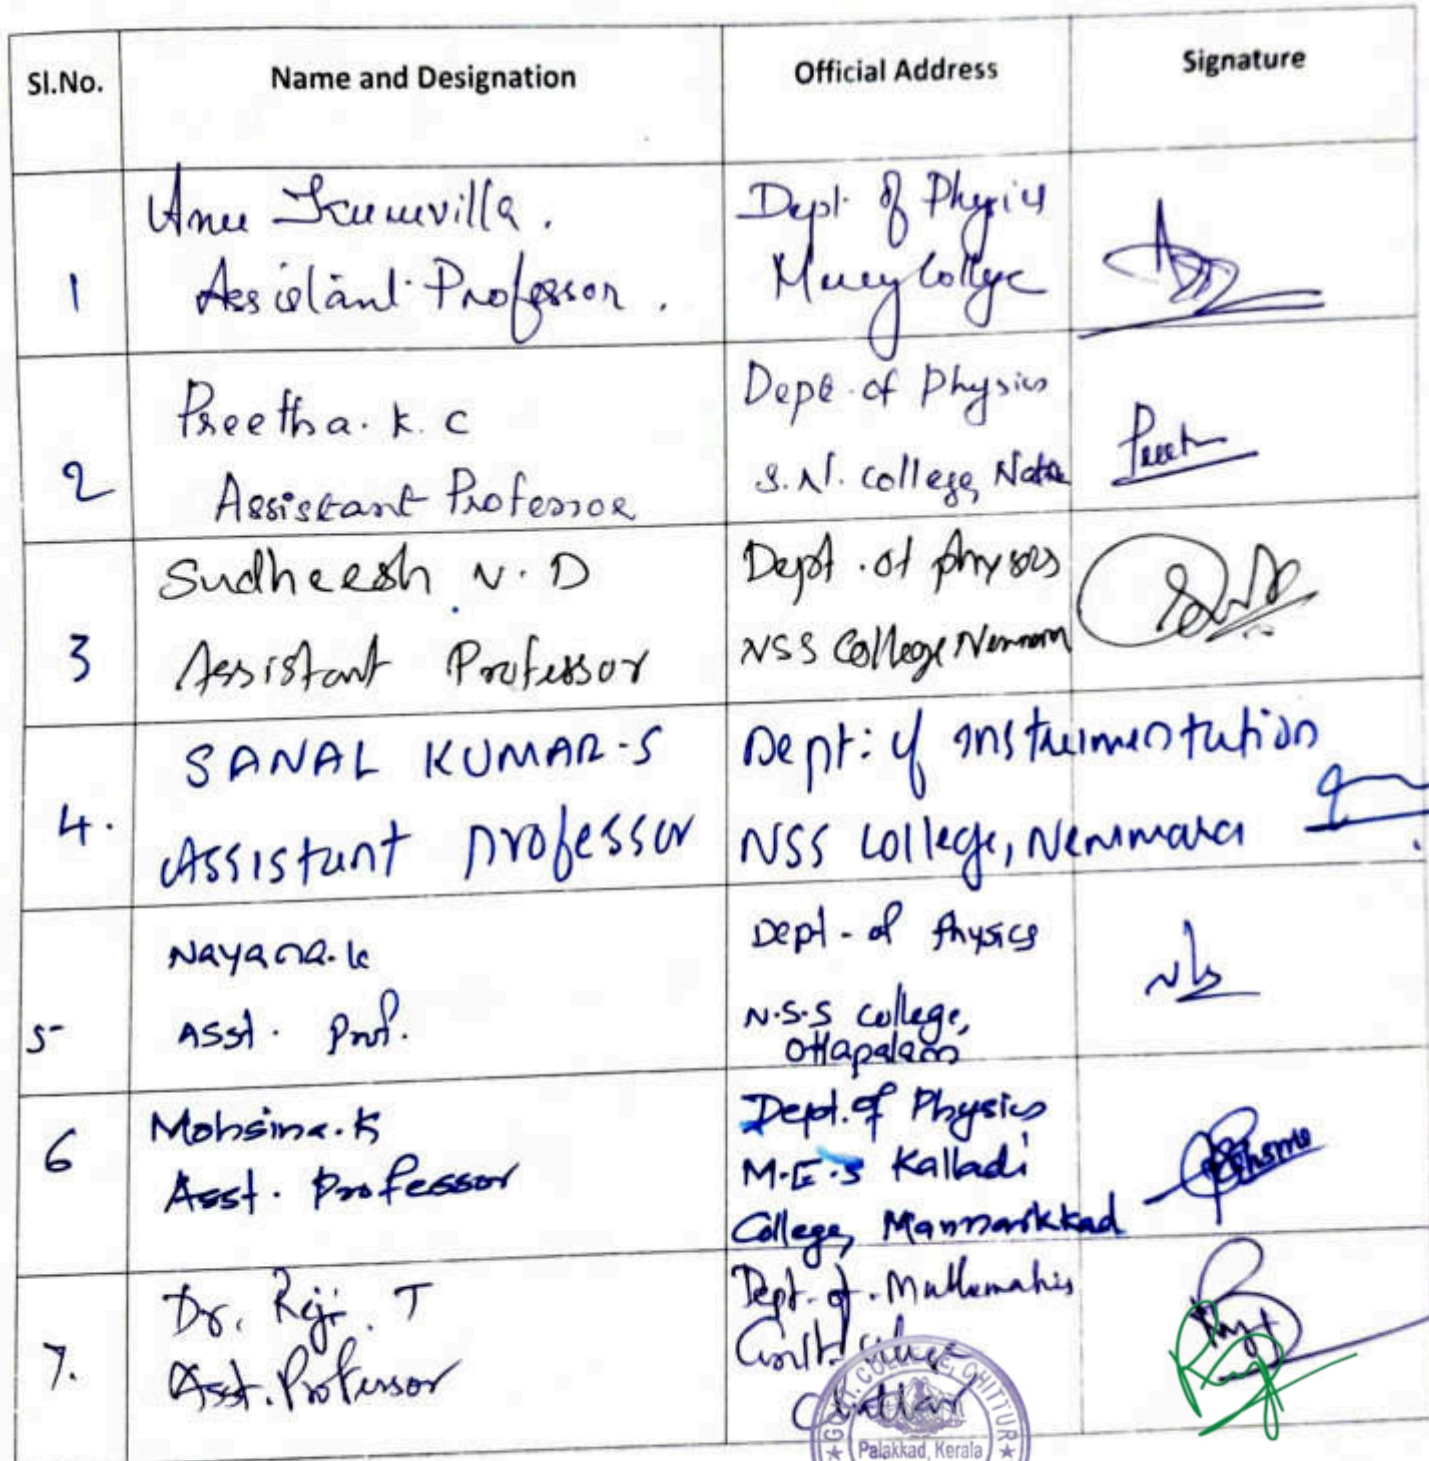 Sl.No. Name and Designation Official Address Signature
1
Anu Kuruvilla.
Assistant Professor.
Dept of Physics
Mercy College
2
Preetha. K. C
Assistant Professor
Dept. of Physics
S.N. College,
3
Sudheesh N. D
Assistant Professor
Dept. of physics
NSS College
4.
SANAL KUMAR.S
Assistant professor
Dept: of Instrumentation
NSS College, Nemmara
5
Nayana.K
Asst. Prof.
Dept. of Physics
N.S.S College,
Ottapalam
6
Mohsina.K
Asst. Professor
Dept. of Physics
M.E.S Kalladi
College, Mannarkkad
7.
Dr. Reji. T
Asst. Professor
Dept. of. Mathematics
Govt. College
Chittur
GOVT. COLLEGE, CHITTUR
Palakkad, Kerala